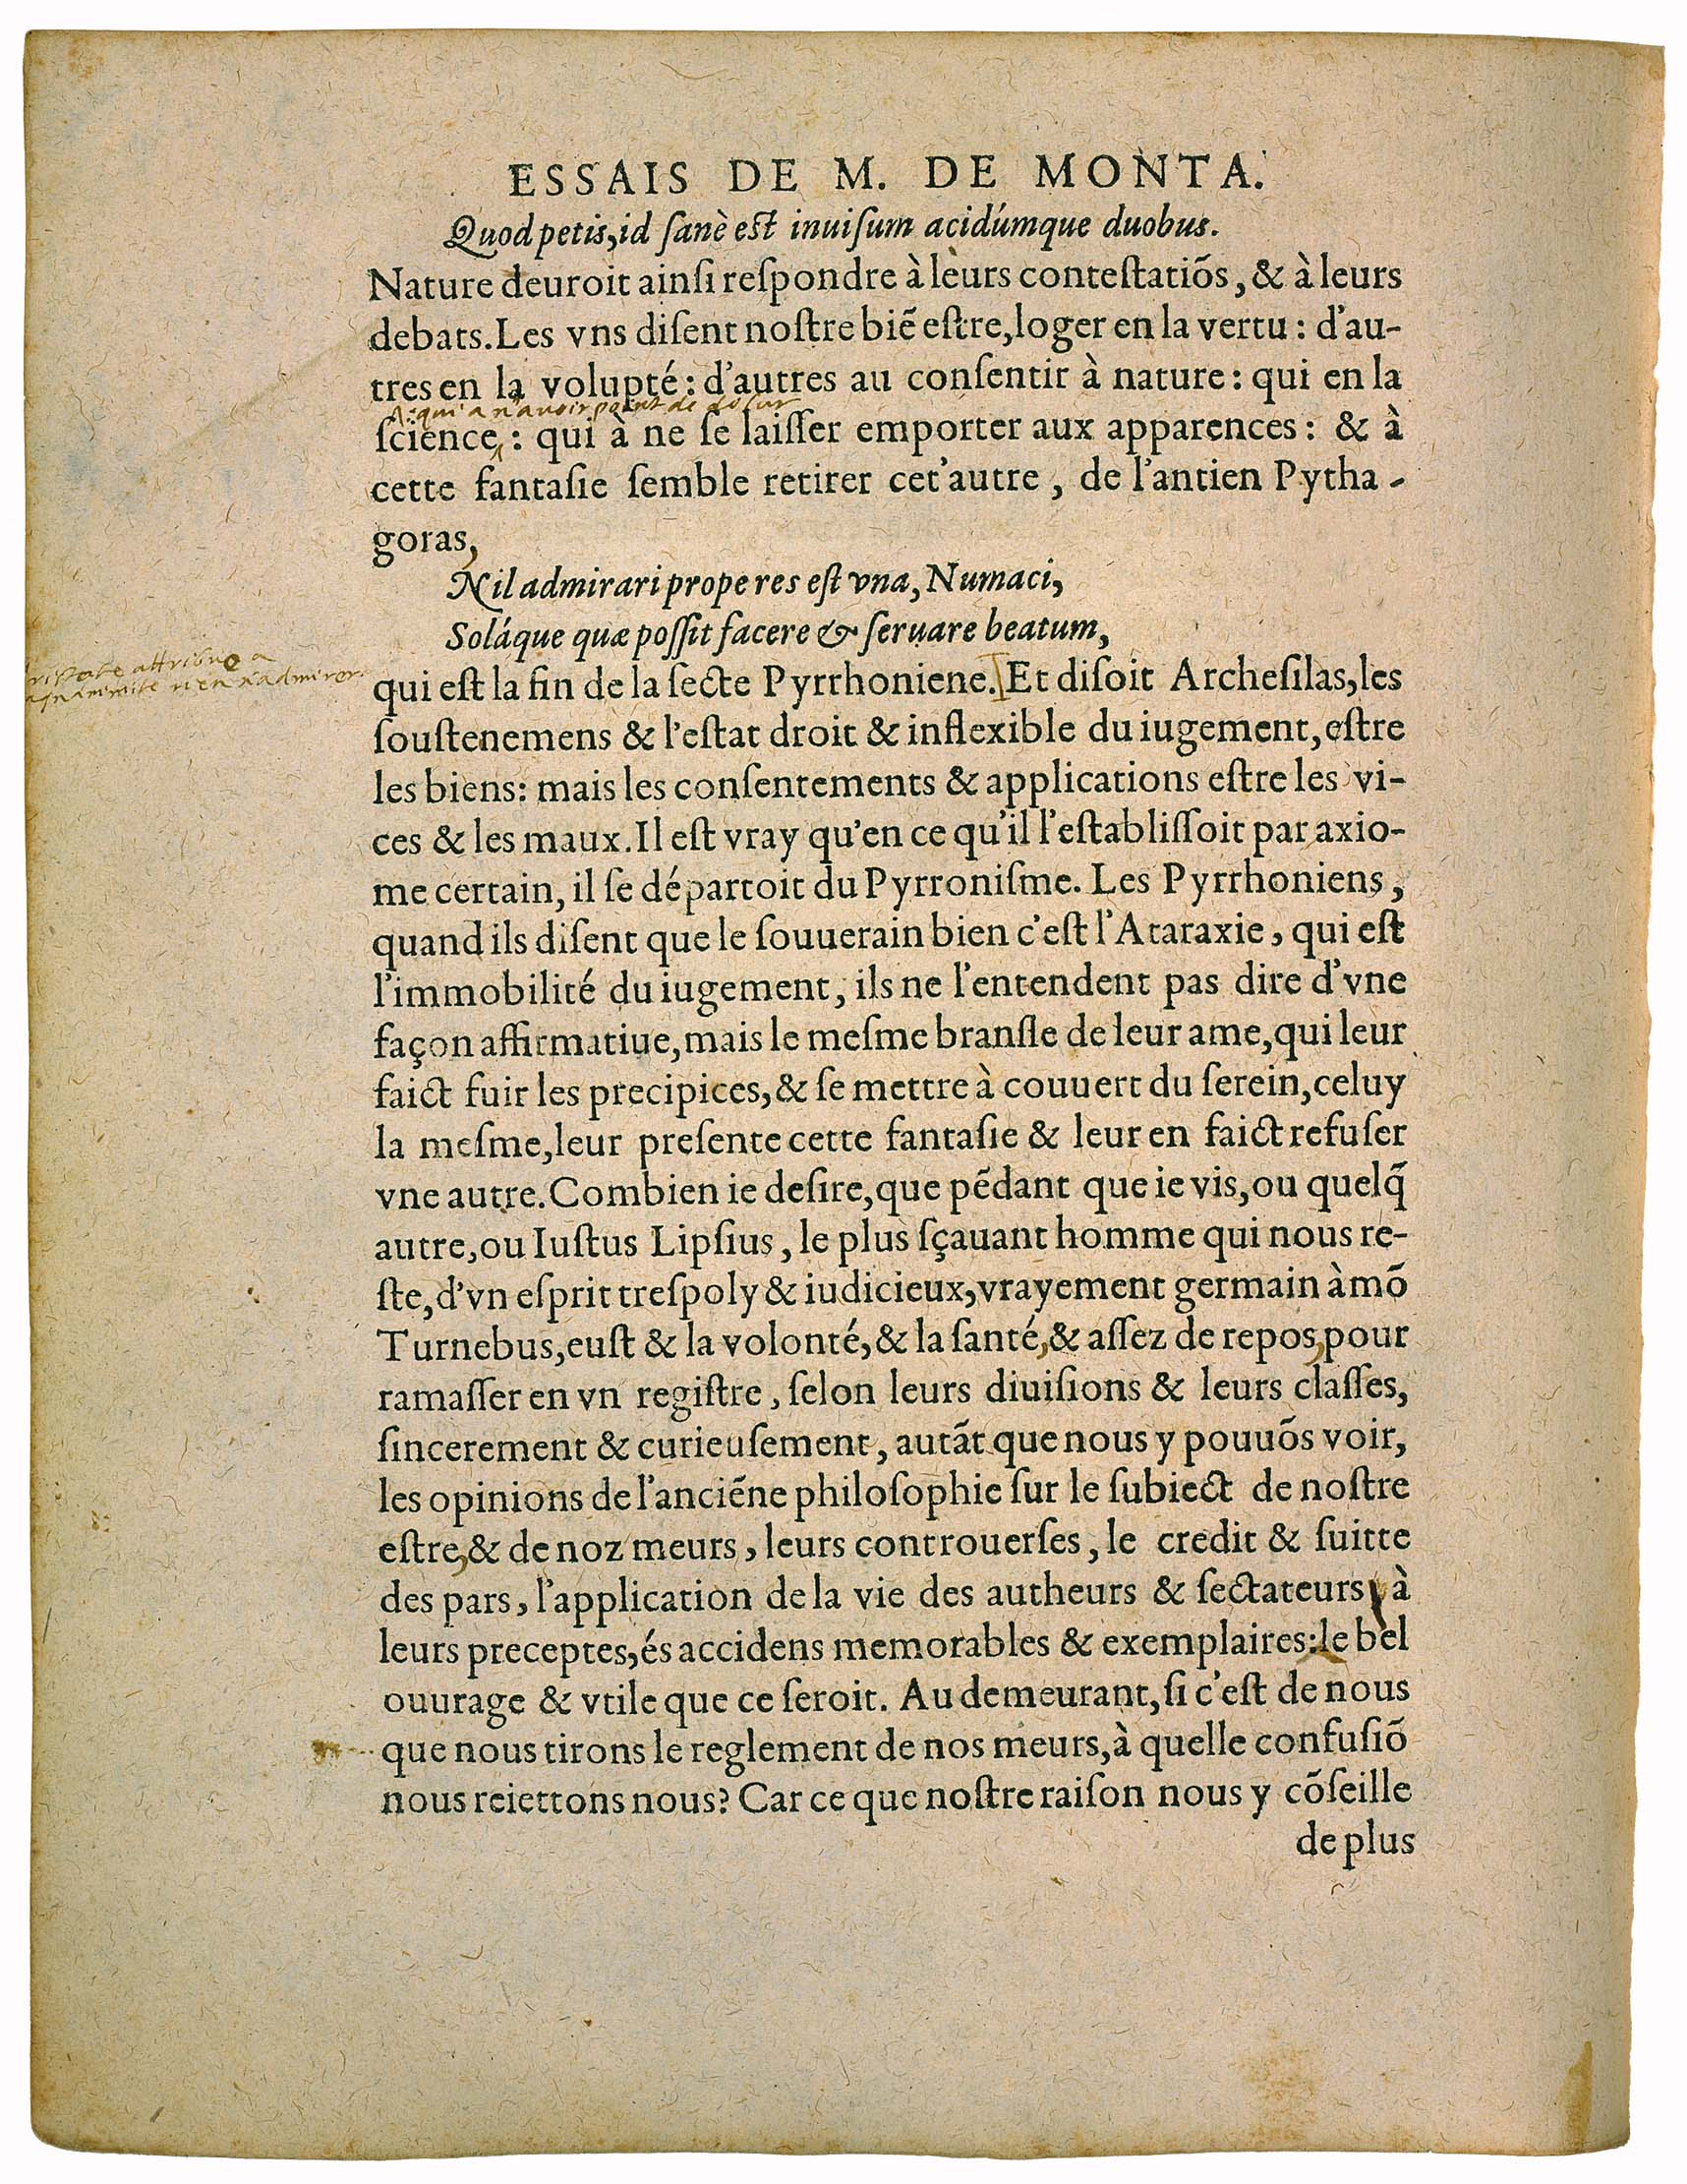 ESSAIS DE M. DE MONTA.
Quod petis, id ſanè eſt inuiſum acidúmque duobus.
Nature deuroit ainſi reſpondre à leurs conteſtatiõs, & à leurs
debats. Les vns diſent noſtre biẽ eſtre, loger en la vertu : d'au-
tres en la volupté : d'autres au conſentir à nature : qui en la
: qui a n'avoir point de dolur
ſcience : qui à ne ſe laiſſer emporter aux apparences : & à
cette fantaſie ſemble retirer cet'autre, de l'antien Pytha-
goras,
Nil admirari prope res eſt vna, Numaci,
Soláque quæ poſſit facere & ſeruare beatum,
ristote attribue a
agnanimite rien n'admirer
qui eſt la fin de la ſecte Pyrrhoniene. Et diſoit Archeſilas, les
ſouſtenemens & l'eſtat droit & inflexible du iugement, eſtre
les biens : mais les conſentements & applications eſtre les vi-
ces & les maux. Il eſt vray qu'en ce qu'il l'eſtabliſſoit par axio-
me certain, il ſe départoit du Pyrroniſme. Les Pyrrhoniens,
quand ils diſent que le ſouuerain bien c'eſt l'Ataraxie, qui eſt
l'immobilité du iugement, ils ne l'entendent pas dire d'vne
façon affirmatiue, mais le meſme branſle de leur ame, qui leur
faict fuir les precipices, & ſe mettre à couuert du ſerein, celuy
la meſme, leur preſente cette fantaſie & leur en faict refuſer
vne autre. Combien ie deſire, que pẽdant que ie vis, ou quelq̃
autre, ou Iuſtus Lipſius, le plus ſçauant homme qui nous re-
ſte, d'vn eſprit treſpoly & iudicieux, vrayement germain à mõ
Turnebus, euſt & la volonté, & la ſanté, & aſſez de repos, pour
ramaſſer en vn regiſtre, ſelon leurs diuiſions & leurs claſſes,
ſincerement & curieuſement, autãt que nous y pouuõs voir,
les opinions de l'anciẽne philoſophie ſur le ſubiect de noſtre
eſtre, & de noz meurs, leurs controuerſes, le credit & ſuitte
des pars, l'application de la vie des autheurs & ſectateurs, à
leurs preceptes, és accidens memorables & exemplaires : le bel
ouurage & vtile que ce ſeroit. Au demeurant, ſi c'eſt de nous
que nous tirons le reglement de nos meurs, à quelle confuſiõ
nous reiettons nous? Car ce que noſtre raiſon nous y cõſeille
de plus